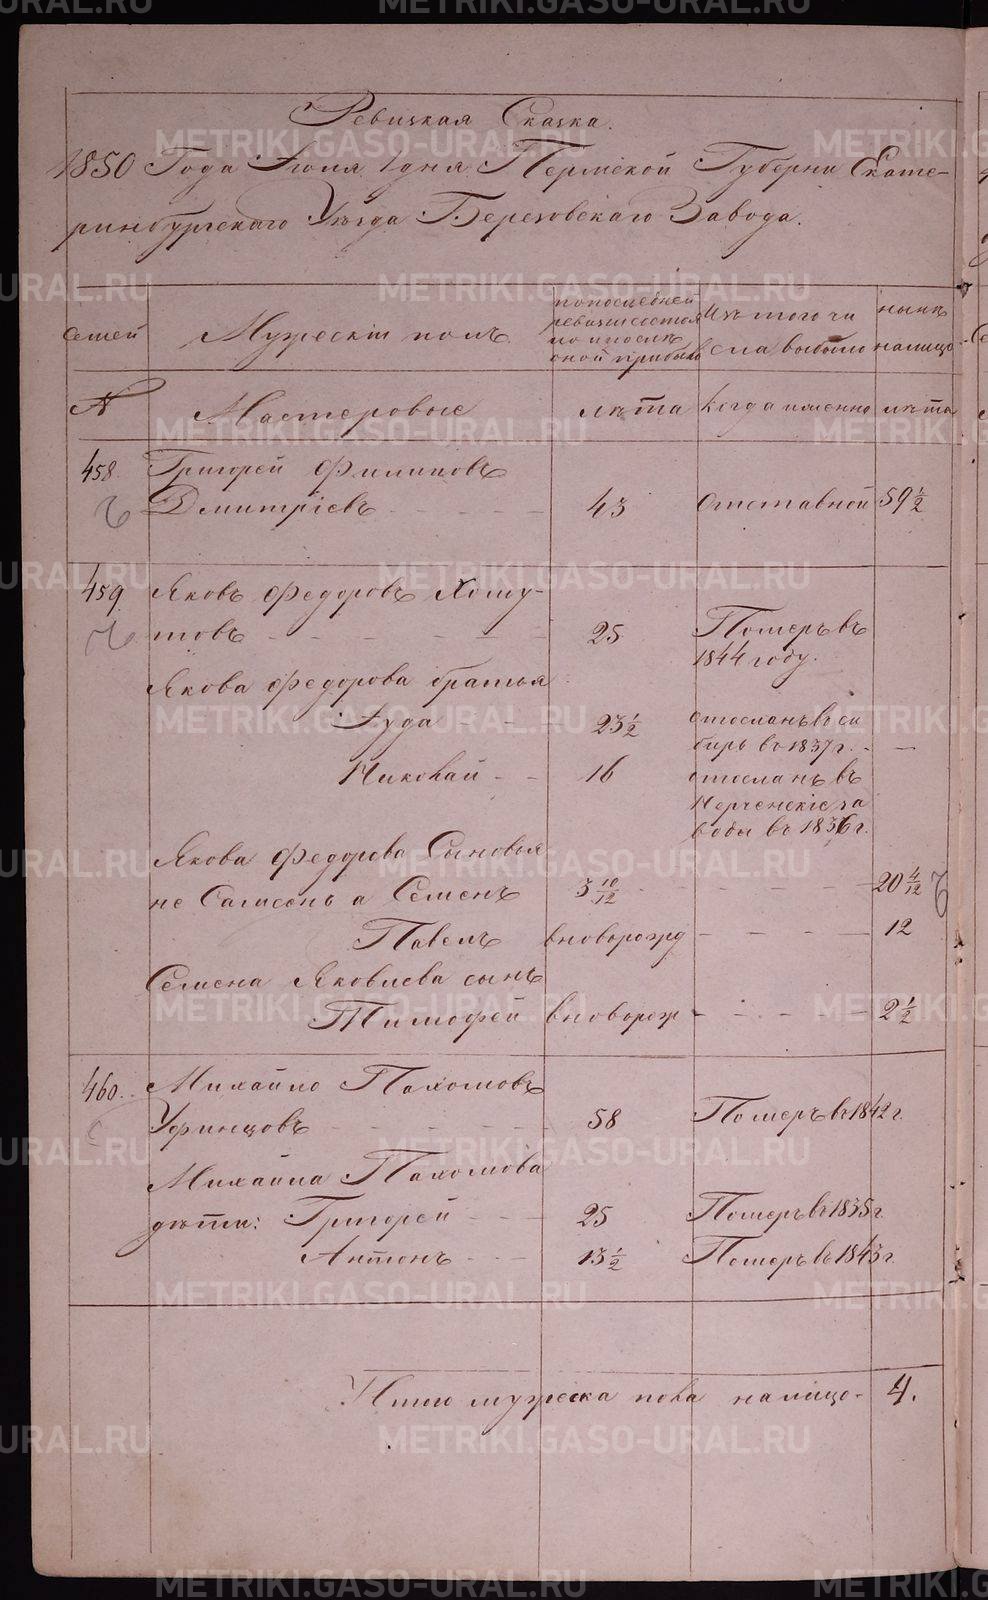 Ревизкая Сказка.
1850 Года Июля 1 дня Пермской Губерни Екате-
ринбургскаго Уезда Березовскаго Завода.
семей
Мужескiй полъ
по последней
ревизи состоя
ло и после
оной прибыло
Изъ того чи
сла выбыло
ныне
налицо
№
Мастеровые
лета
когда именно
лета
458.
Григорей Филиповъ
Дмитрiевъ - - - - 43 Отставной 59 1/2
459.
Яковъ Федоровъ Хому-
товъ - - - - - 25 Померъ въ
1844 году.
Якова Федорова братья
Iуда - - 23 1/2 отосланъ во си
бирь въ 1837 г. - -
Николай - - 16 отосланъ въ
Нерченскiе за
воды въ 1836 г.
Якова Федорова Сыновья
не Самсонъ а Семенъ 3 10/12 - - - - - 20 4/12
Павелъ вноворожд - - - - 12
Семена Яковлева сынъ
Тимофей вноворож - - - - - 2 1/2
460.
Михайло Пахомовъ
Уфинцовъ - - - - 58 Померъ въ 1842 г.
Михайла Пахомова
дети: Григорей - - - 25 Померъ въ 1835 г.
Антонъ - - - 13 1/2 Померъ въ 1843 г.
Итого мужеска пола налицо- 4.
METRIKI.GASO-URAL.RU